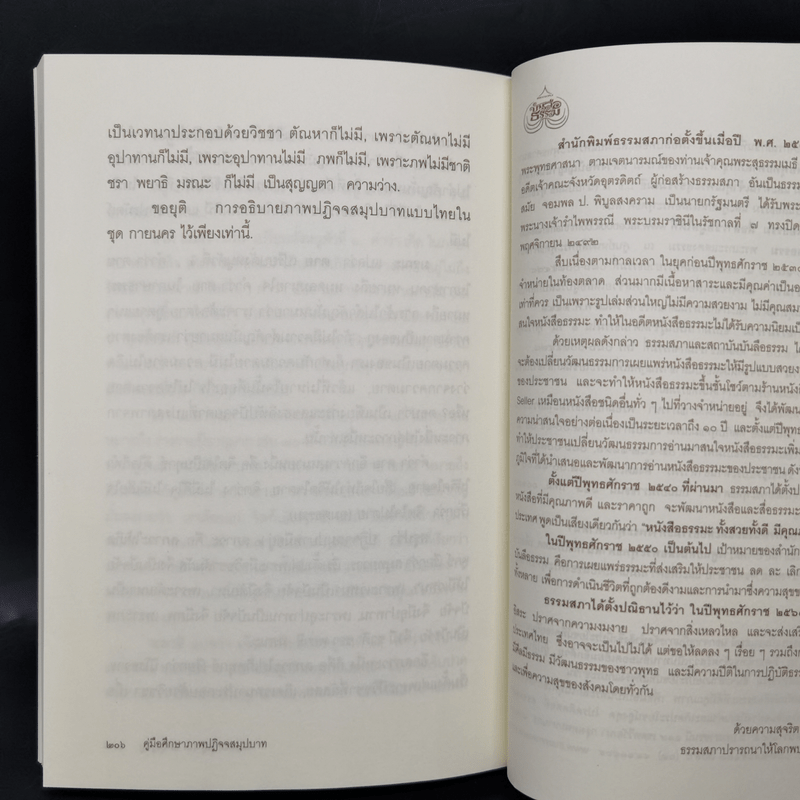 เป็นเวทนาประกอบด้วยวิชชา ตัณหาก็ไม่มี, เพราะตัณหาไม่มี
อุปาทานก็ไม่มี, เพราะอุปาทานไม่มี ภพก็ไม่มี, เพราะภพไม่มีชาติ
ชรา พยาธิ มรณะ ก็ไม่มี เป็นสุญญตา ความว่าง.
ขอยุติ การอธิบายภาพปฏิจจสมุปบาทแบบไทยใน
ชุด กายนคร ไว้เพียงเท่านี้.
๒๐๖ คู่มือศึกษาภาพปฏิจจสมุปบาท
สำนักพิมพ์ธรรมสภาก่อตั้งขึ้นเมื่อปี พ.ศ.
พระพุทธศาสนา ตามเจตนารมณ์ของท่านเจ้าคุณพระสุธรรมเมธี
อดีตเจ้าคณะจังหวัดอุตรดิตถ์ ผู้ก่อสร้างธรรมสภา อันเป็นธรรม
สมัย จอมพล ป. พิบูลสงคราม เป็นนายกรัฐมนตรี ได้รับพระ
พระนางเจ้ารำไพพรรณี พระบรมราชินีในรัชกาลที่ ๗ ทรงปิด
พฤศจิกายน ๒๔๙๒
สืบเนื่องตามกาลเวลา ในยุคก่อนปีพุทธศักราช ๒๕๓๐
จำหน่ายในท้องตลาด ส่วนมากมีเนื้อหาสาระและมีคุณค่าเป็น
เท่าที่ควร เป็นเพราะรูปเล่มส่วนใหญ่ไม่มีความสวยงาม ไม่มีคุณสม
สนใจหนังสือธรรมะ ทำให้ในอดีตหนังสือธรรมะไม่ได้รับความนิยม
ด้วยเหตุผลดังกล่าว ธรรมสภาและสถาบันบันลือธรรม
จะต้องเปลี่ยนวัฒนธรรมการเผยแพร่หนังสือธรรมะให้มีรูปแบบสวยง
ของประชาชน และจะทำให้หนังสือธรรมะขึ้นชั้นโชว์ตามร้านหนัง
Seller เหมือนหนังสือชนิดอื่นทั่ว ๆ ไปที่วางจำหน่ายอยู่ จึงได้พัฒน
ความน่าสนใจอย่างต่อเนื่องเป็นระยะเวลาถึง ๑๐ ปี และตั้งแต่ปีพุทธ
ทำให้ประชาชนเปลี่ยนวัฒนธรรมการอ่านมาสนใจหนังสือธรรมะเพิ่ม
ภูมิใจที่ได้นำเสนอและพัฒนาการอ่านหนังสือธรรมะของประชาชน ดัง
ตั้งแต่ปีพุทธศักราช ๒๕๔๐ ที่ผ่านมา ธรรมสภาได้ตั้งป
หนังสือที่มีคุณภาพดี และราคาถูก จะพัฒนาหนังสือและสื่อธรรมะ
ประเทศ พูดเป็นเสียงเดียวกันว่า "หนังสือธรรมะ ทั้งสวยทั้งดี มีคุณ
ในปีพุทธศักราช ๒๕๕๐ เป็นต้นไป เป้าหมายของสำนัก
บันลือธรรม คือการเผยแพร่ธรรมะที่ส่งเสริมให้ประชาชน ลด ละ เลิก
ทั้งหลาย เพื่อการดำเนินชีวิตที่ถูกต้องดีงามและการนำมาซึ่งความสุข
ธรรมสภาได้ตั้งปณิธานไว้ว่า ในปีพุทธศักราช ๒๕๖๐
อิสระ ปราศจากความงมงาย ปราศจากสิ่งเหลวไหล และจะส่งเสริ
ประเทศไทย ซึ่งอาจจะเป็นไปไม่ได้ แต่ขอให้ลดลง ๆ เรื่อย ๆ รวมถึง
มีศีลมีธรรม มีวัฒนธรรมของชาวพุทธ และมีความปีติในการปฏิบัติธรร
และเพื่อความสุขของสังคมโดยทั่วกัน
ด้วยความสุจริต
ธรรมสภาปรารถนาให้โลกพบ